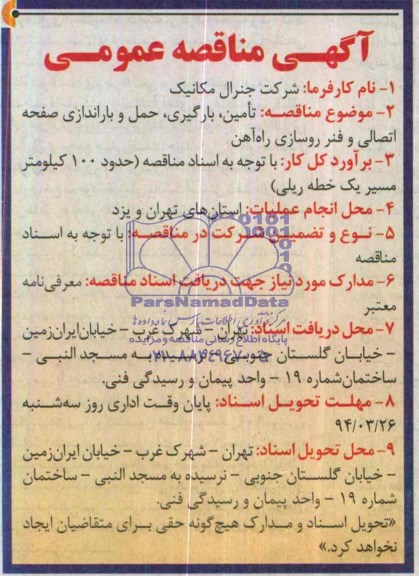 آگهی مناقصه عمومی
۱- نام کارفرما: شرکت جنرال مکانیک
۲- موضوع مناقصه: تأمین، بارگیری، حمل و باراندازی صفحه
اتصالی و فنر روسازی راه‌آهن
۳- برآورد کل کار: با توجه به اسناد مناقصه (حدود ۱۰۰ کیلومتر
مسیر یک خطه ریلی)
۴- محل انجام عملیات: استان‌های تهران و یزد
۵- نوع و تضمین شرکت در مناقصه: با توجه به اسناد
مناقصه
۶- مدارک مورد نیاز جهت دریافت اسناد مناقصه: معرفی‌نامه
معتبر
ParsNamadData
پایگاه اطلاع رسانی مناقصه و مزایده
۷- محل دریافت اسناد: تهران - شهرک غرب - خیابان ایران‌زمین
- خیابان گلستان جنوبی - نرسیده به مسجد النبی -
ساختمان شماره ۱۹ - واحد پیمان و رسیدگی فنی.
۸- مهلت تحویل اسناد: پایان وقت اداری روز سه‌شنبه
۹۴/۰۳/۲۶
۹- محل تحویل اسناد: تهران - شهرک غرب - خیابان ایران‌زمین
- خیابان گلستان جنوبی - نرسیده به مسجد النبی - ساختمان
شماره ۱۹ - واحد پیمان و رسیدگی فنی.
«تحویل اسناد و مدارک هیچ‌گونه حقی برای متقاضیان ایجاد
نخواهد کرد.»